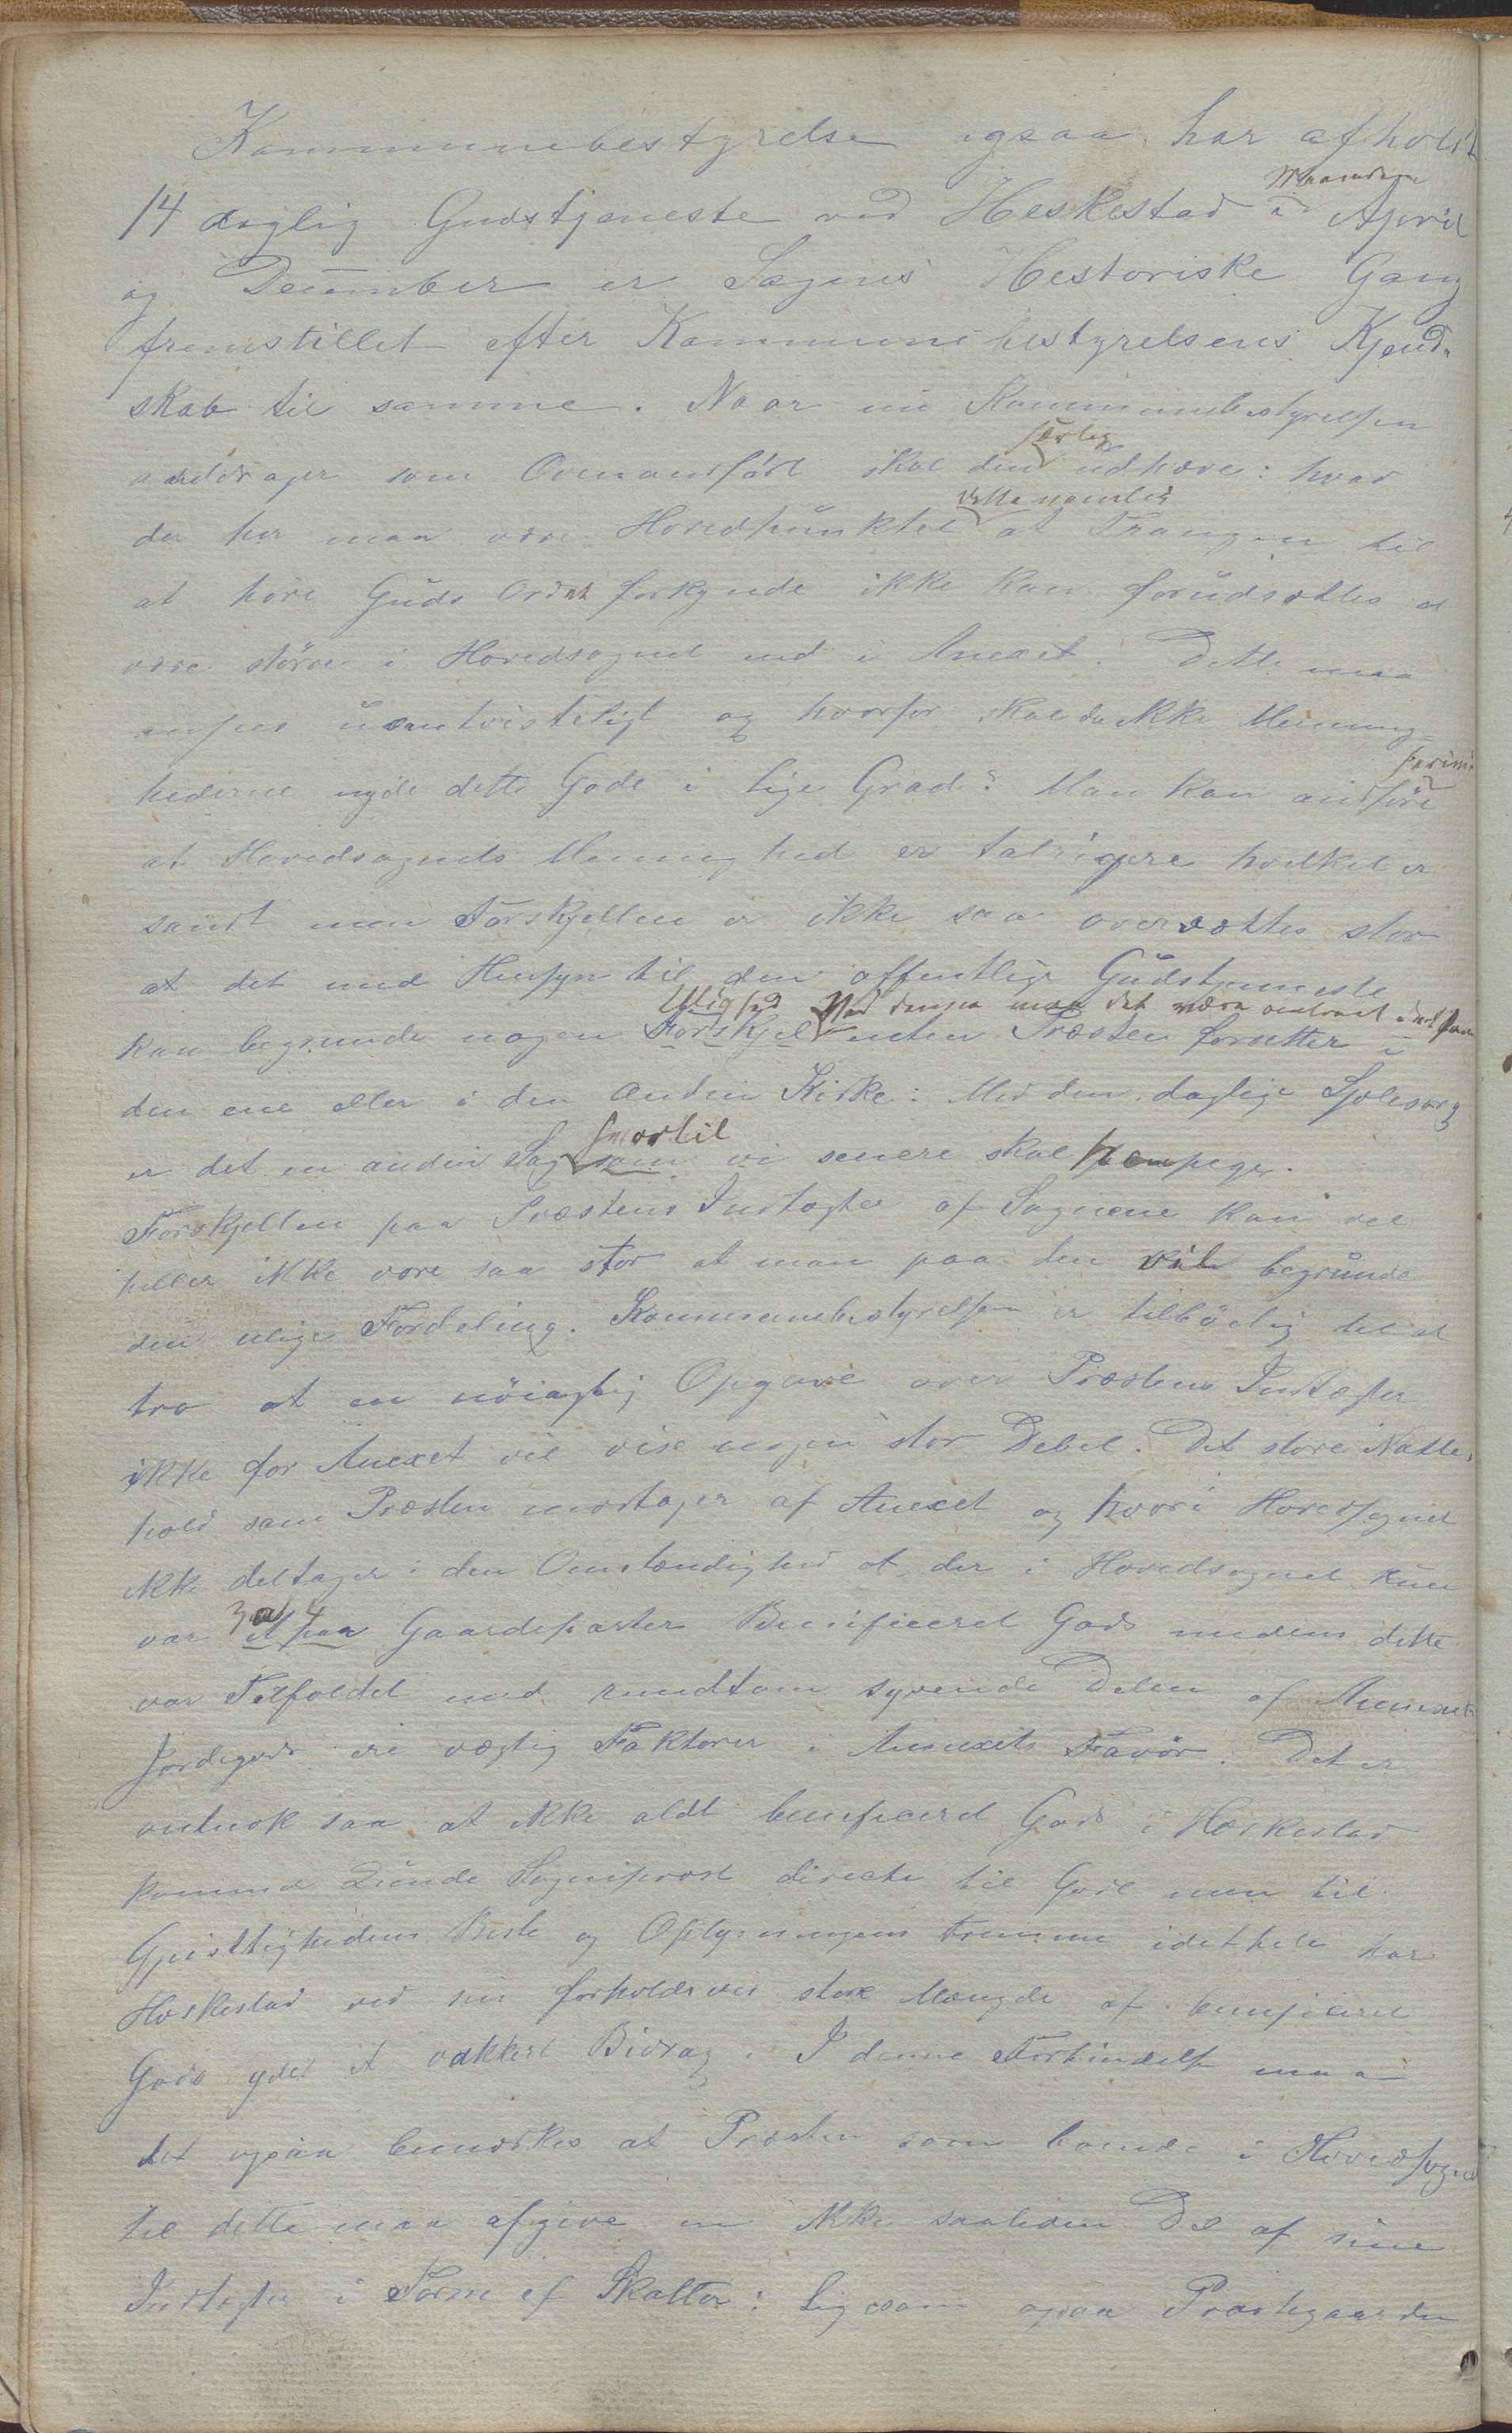 Kommunebestyrelse ogsaa har afholdt
Maanederne
14 daglig Gudstjeneste ved Heskestad i April
og December er Sagens Hestoriske Gang
fremstillet efter Kommunebestyrelsens Kjend-
skab til samme. Naar nu Kommunebestyrelsen
særleg
anddrager som Ovenanført skal den udhæve: hvad
dette nemlig
der her maa være Hovedpunktet at Trangen til
at høre Guds Ordet forkynde ikke kan forudsættes at
være større i Hovedsognet end i Anexet. Dette maa
ansees uomtvisteligt og hvorfor skal da ikke Menning-
hederne nyde dette Gode i lige Grad? Man kan anføre
at Hovedsognets Mennighed er talrigere hvilket er
sandt men Forskjellen er ikke saa overvættes stor
at det med Hensyn til den offentlige Gudstjeneste
Ulighed Ved denne maa det være
kan begrunde nogen Forskjel enten Præsten forretter i
den ene eller i den anden Kirke: Med den daglige Sjælesorg
hvortil
er det en anden Sag som vi senere skal henpege.
Forskjellen paa Præstens Indtægter af Sognene kan vel
heller ikke være saa stor at man paa den vil begrunde
den ulige Fordeling. Kommunebestyrelsen er tilbøielig til at
tro at en nøiagtig Opgave over Præstens Indtægter
ikke for Anexet vil vise nogen stor Debet. Det store Natte-
hold som Præsten modtager af Anexet og hvori Hovedsognet
ikke deltager: den Omstændighed at der i Hovedsognet kun
3 a 4
var et paa Gaardeparter Benificeret Gods medens dette
var Tilfældet med rundtom syvende Delen af Annexets
Jordegods ere vægtig Faktorer i Annexets Favør. Det er
vistnok saa at ikke aldt benificeret Gods i Heskestad
komme Lunde Sogneprest directe til Gode men til
Gjeistlighedens Beste og Oplysningens Fremme idethele har
Heskestad ved sin forholdsvis store Mængde af benificeret
Gods ydet et vakkert Bidrag. I denne Forbindelse maa
det ogsaa bemærkes at Præsten som boende i Hovedsognet
til dette maa afgive en ikke saaliden Del af sine
Indtægter i Form af Skatter: Ligesom ogsaa Præstegaarden